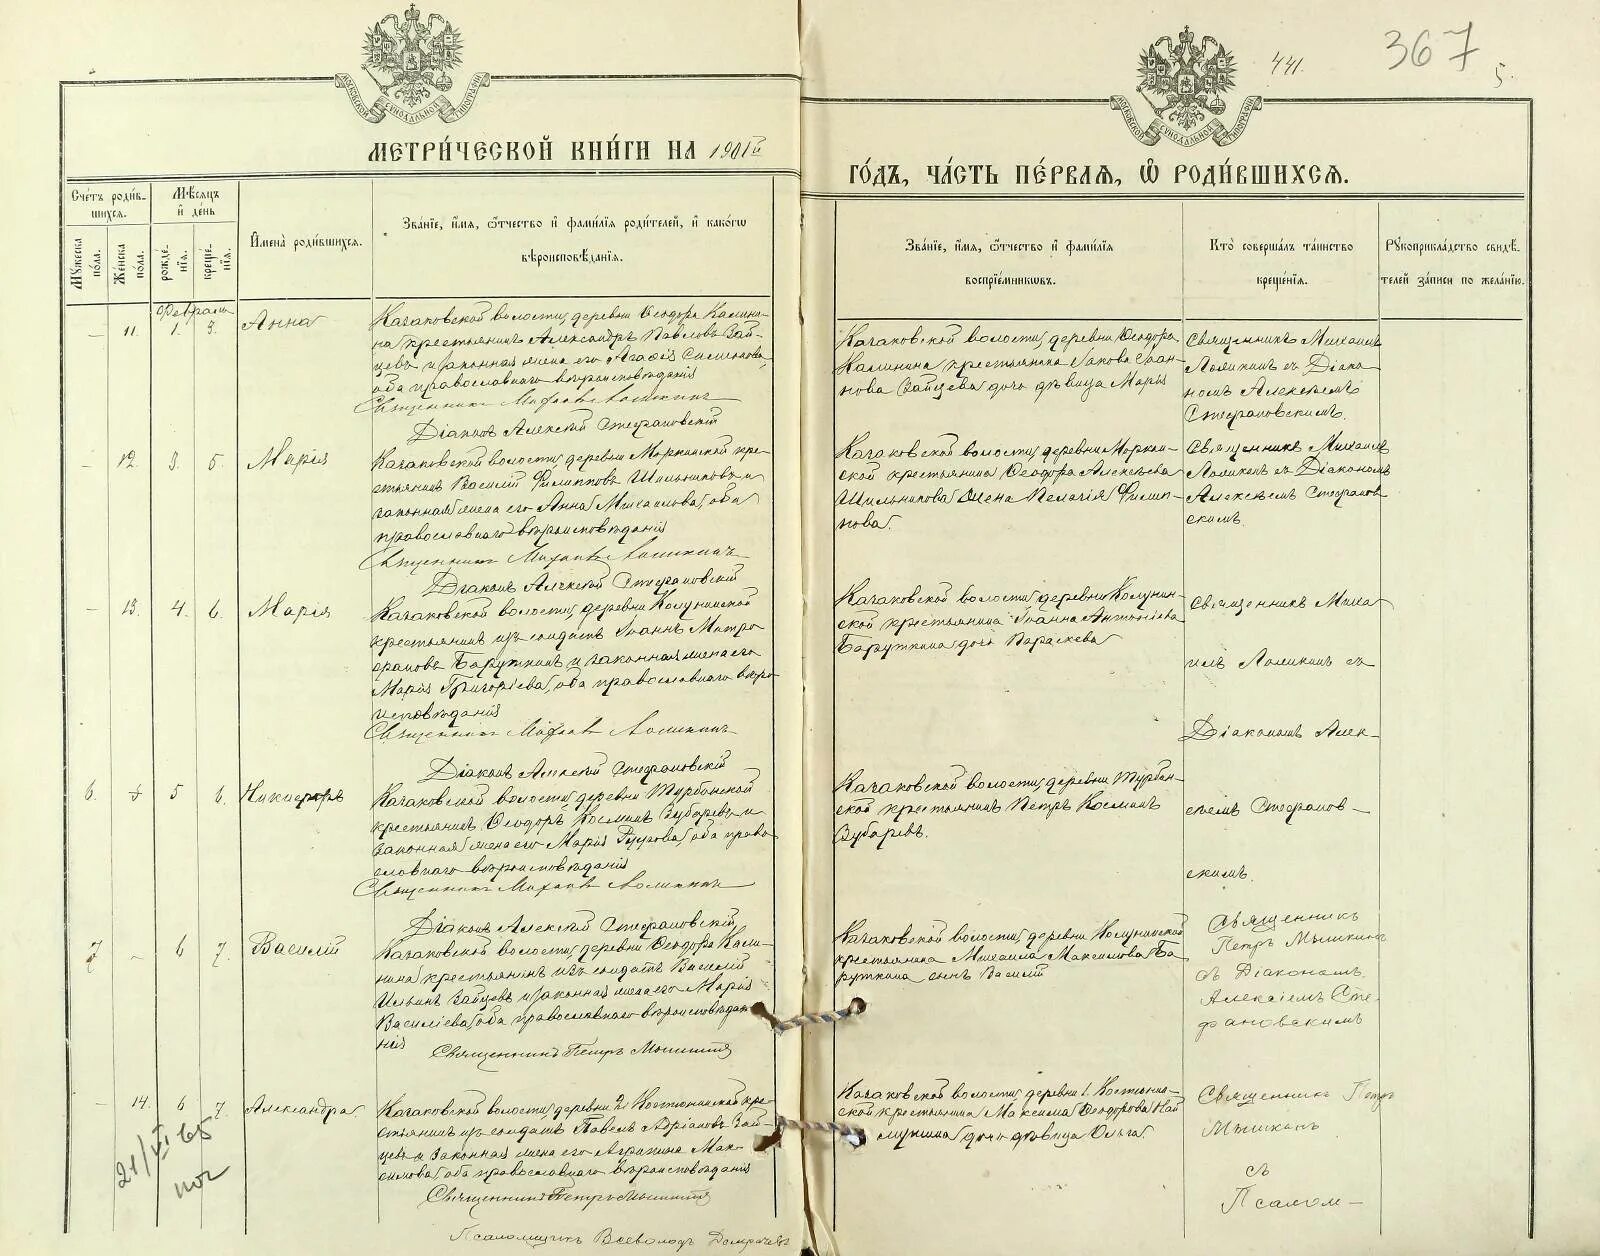 441.
367
5.
МОСКОВСКОЙ СУНОДАЛЬНОЙ ТИПОГРАФІИ
МОСКОВСКОЙ СУНОДАЛЬНОЙ ТИПОГРАФІИ
МЕТРИ́ЧЕСКОЙ КНИ́ГИ НА 1901й
ГО́ДЪ, ЧА́СТЬ ПЕ́РВАѦ, Ѡ҆ РОДИ́ВШИХСѦ.
Сче́тъ роди́в-
шихсѧ.
Мѣ́сѧцъ
и҆ де́нь
Мꙋ́жеска
по́ла.
Же́нска
по́ла.
рожде́-
нїѧ.
креще́-
нїѧ.
И҆мена̀ роди́вшихсѧ.
Зва́нїе, и҆́мѧ, ѻ҆́тчество и҆ фами́лїѧ роди́телей, и҆ како́гѡ
вѣроисповѣ́данїѧ.
Зва́нїе, и҆́мѧ, ѻ҆́тчество и҆ фами́лїѧ
воспрїе́мникѡвъ.
Кто̀ соверша́лъ та́инство
креще́нїѧ.
Рꙋкоприкла́дство свидѣ́-
телей за́писи по жела́нїю.
Февраль
— 11. 1. 3. Анна
Качаковской волости, деревни Ѳеодора Калини-
на крестьянинъ Александръ Павловъ Зай-
цевъ и законная жена его Агаѳія Симеонова,
оба православнаго вѣроисповѣданія
Священникъ Михаилъ Ломикинъ
Діаконъ Алексій Стефановскій
Качаковской волости, деревни Ѳеодора
Калинина крестьянина Іакова Іоан-
нова Зайцева дочь дѣвица Марія
Священникъ Михаилъ
Ломикинъ съ Діако-
номъ Алексѣемъ
Стефановскимъ.
— 12. 3. 5. Марія
Качаковской волости, деревни Моркинской кре-
стьянинъ Василій Филипповъ Шильниковъ и
законная жена его Анна Михаилова, оба
православнаго вѣроисповѣданія
Священникъ Михаилъ Ломикинъ
Діаконъ Алексій Стефановскій
Качаковской волости, деревни Моркин-
ской крестьянина Ѳеодора Алексѣева
Шильникова жена Пелагія Филип-
пова.
Священникъ Михаилъ
Ломикинъ съ Діакономъ
Алексѣемъ Стефанов-
скимъ.
— 13. 4. 6. Марія
Качаковской волости, деревни Колунинской
крестьянинъ изъ солдатъ Іоаннъ Митро-
фановъ Баруткинъ и законная жена его
Марія Григоріева, оба православнаго вѣро-
исповѣданія
Священникъ Михаилъ Ломикинъ
Діаконъ Алексій Стефановскій
Качаковской волости, деревни Колунин-
ской крестьянина Іоанна Антоніева
Баруткина дочь Параскева
Священникъ Миха-
илъ Ломикинъ съ
Діакономъ Алек-
сѣемъ Стефанов-
скимъ.
6. 5 6. Никифоръ
Качаковской волости, деревни Турбанской
крестьянинъ Ѳеодоръ Косминъ Зубаревъ и
законная жена его Марія оба право-
славнаго вѣроисповѣданія
Священникъ Михаилъ Ломикинъ
Діаконъ Алексій Стефановскій
Качаковской волости, деревни Турбан-
ской крестьянинъ Петръ Косминъ
Зубаревъ.
7 — 6 7. Василій
Качаковской волости, деревни Ѳеодора Кали-
нина крестьянинъ изъ солдатъ Василій
Ильинъ Зайцевъ и законная жена его Марія
Василіева, оба православнаго вѣроисповѣда-
нія
Священникъ Петръ Мышкинъ
Качаковской волости, деревни Колунинской
крестьянина Михаила Максимова Ба-
руткина сынъ Василій
Священникъ
Петръ Мышкинъ
съ Діакономъ
Алексіемъ Сте-
фановскимъ
— 14. 6 7. Александра
Качаковской волости, деревни 2 Костюнинской кре-
стьянинъ изъ солдатъ Павелъ Адріановъ Зай-
цевъ и законная жена его Агрипина Мак-
симова, оба православнаго вѣроисповѣданія
Священникъ Петръ Мышкинъ
Псаломщикъ Всеволодъ
Качаковской волости, деревни 1. Костюнин-
ской крестьянина Максима Ѳеодорова
дочь дѣвица Ольга.
Священникъ Петръ
Мышкинъ
съ
Псалом-
21/VI 65